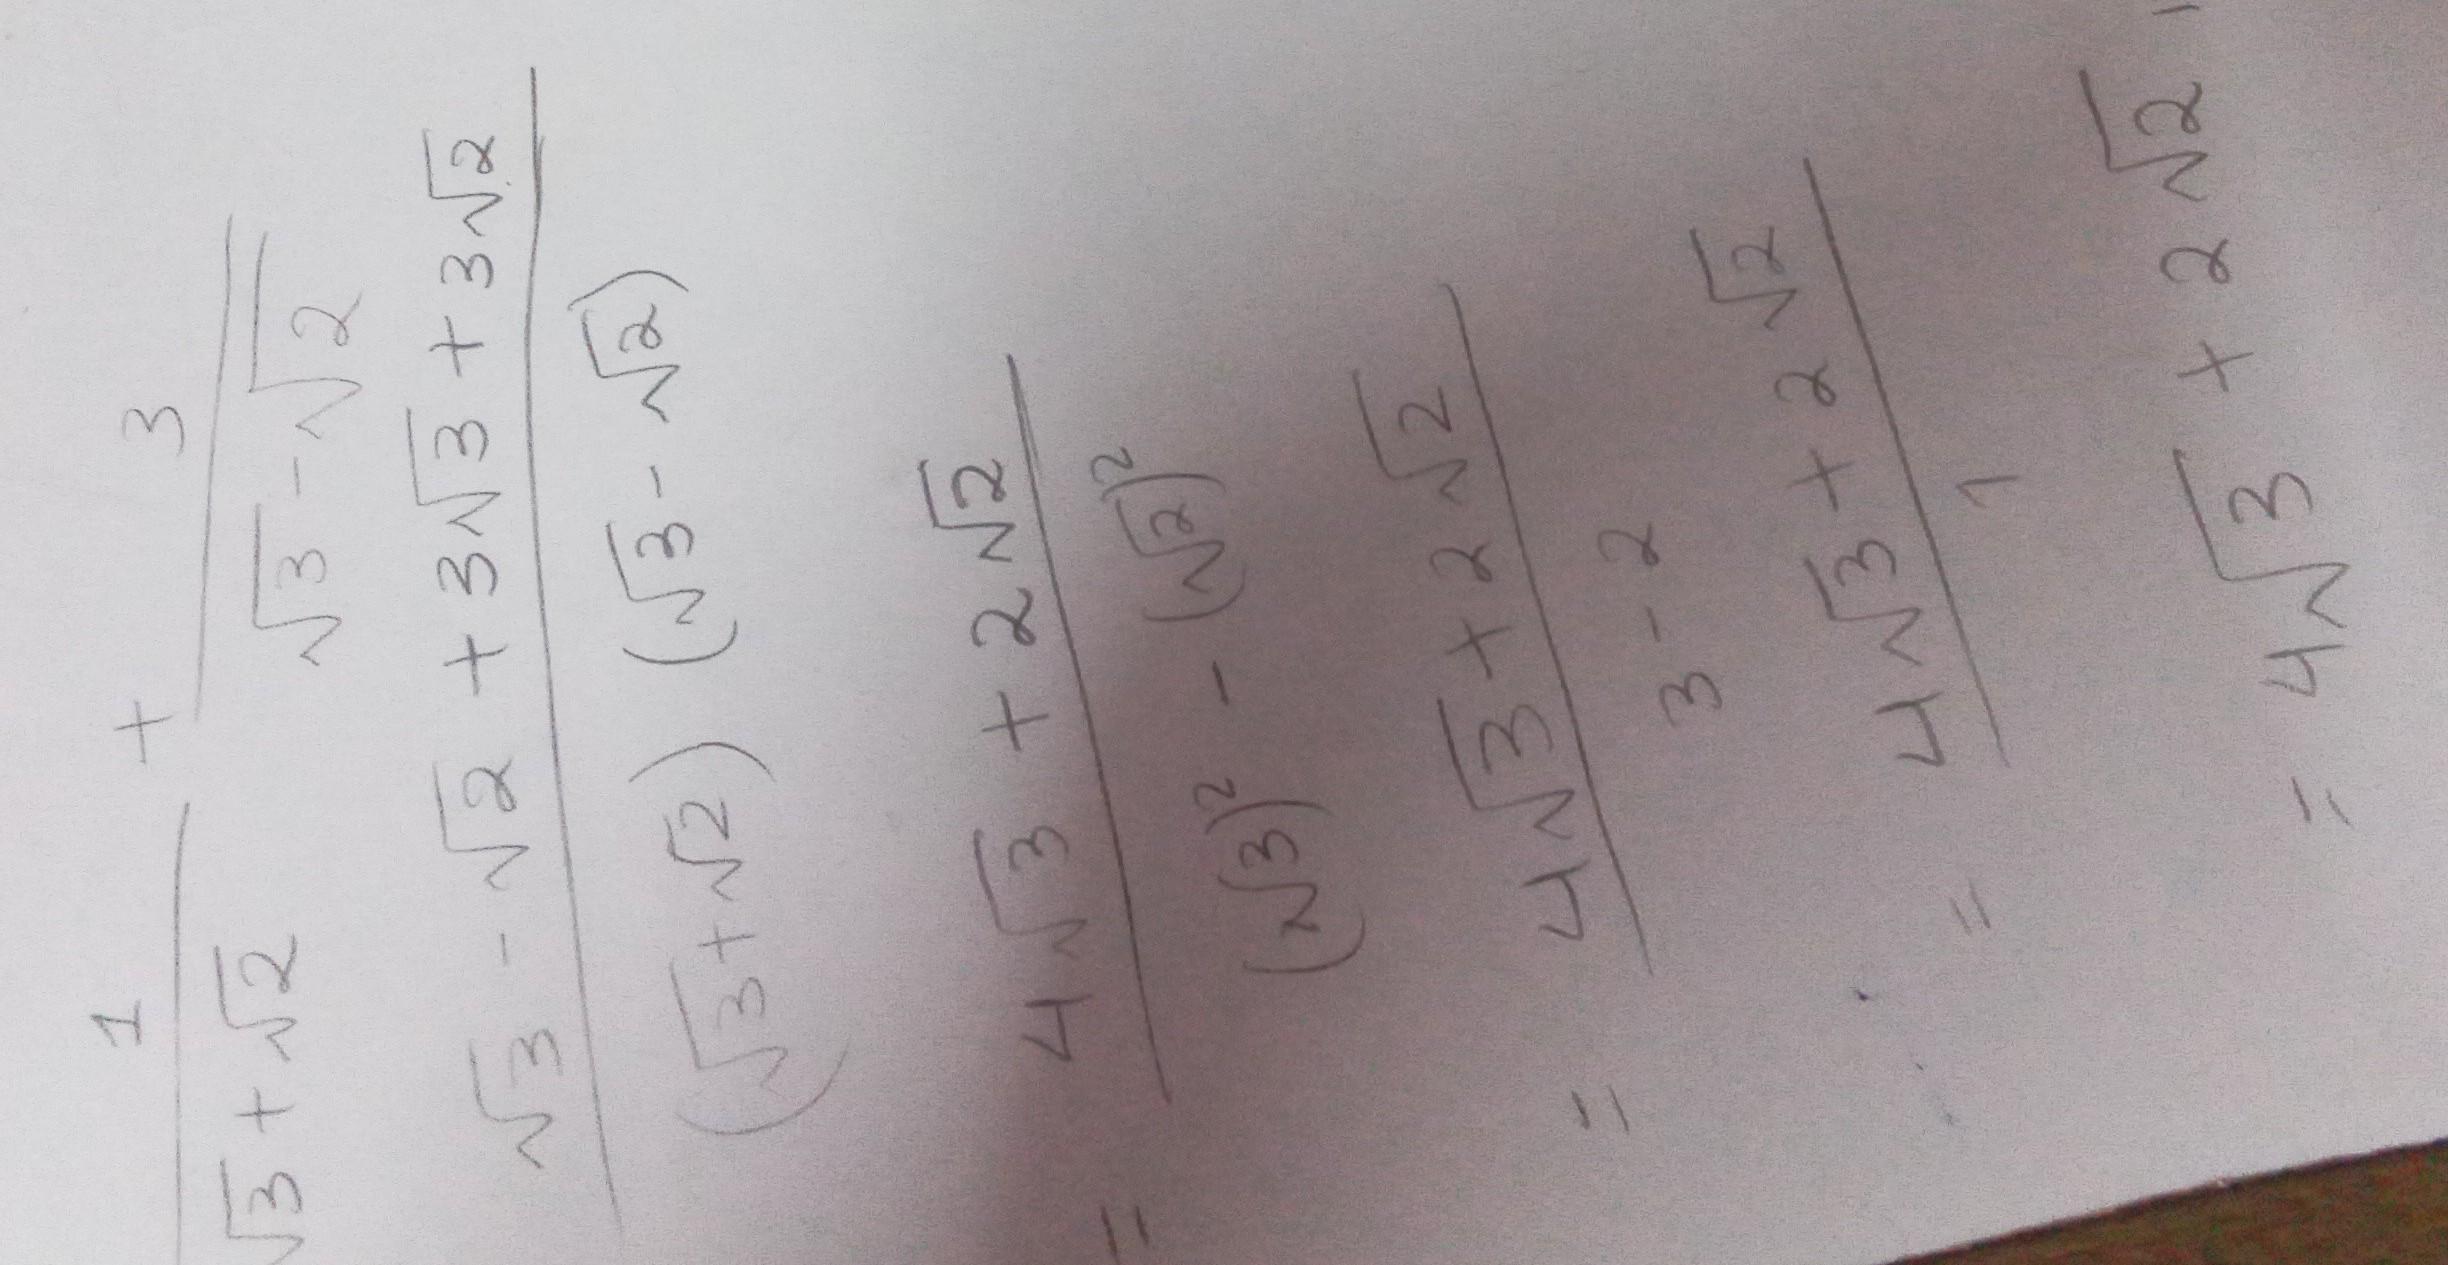 1/(√3 + √2) + 3/(√3 - √2)
(√3 - √2 + 3√3 + 3√2)/((√3 + √2) (√3 - √2))
= (4√3 + 2√2)/((√3)² - (√2)²)
= (4√3 + 2√2)/(3 - 2)
= (4√3 + 2√2)/1
= 4√3 + 2√2